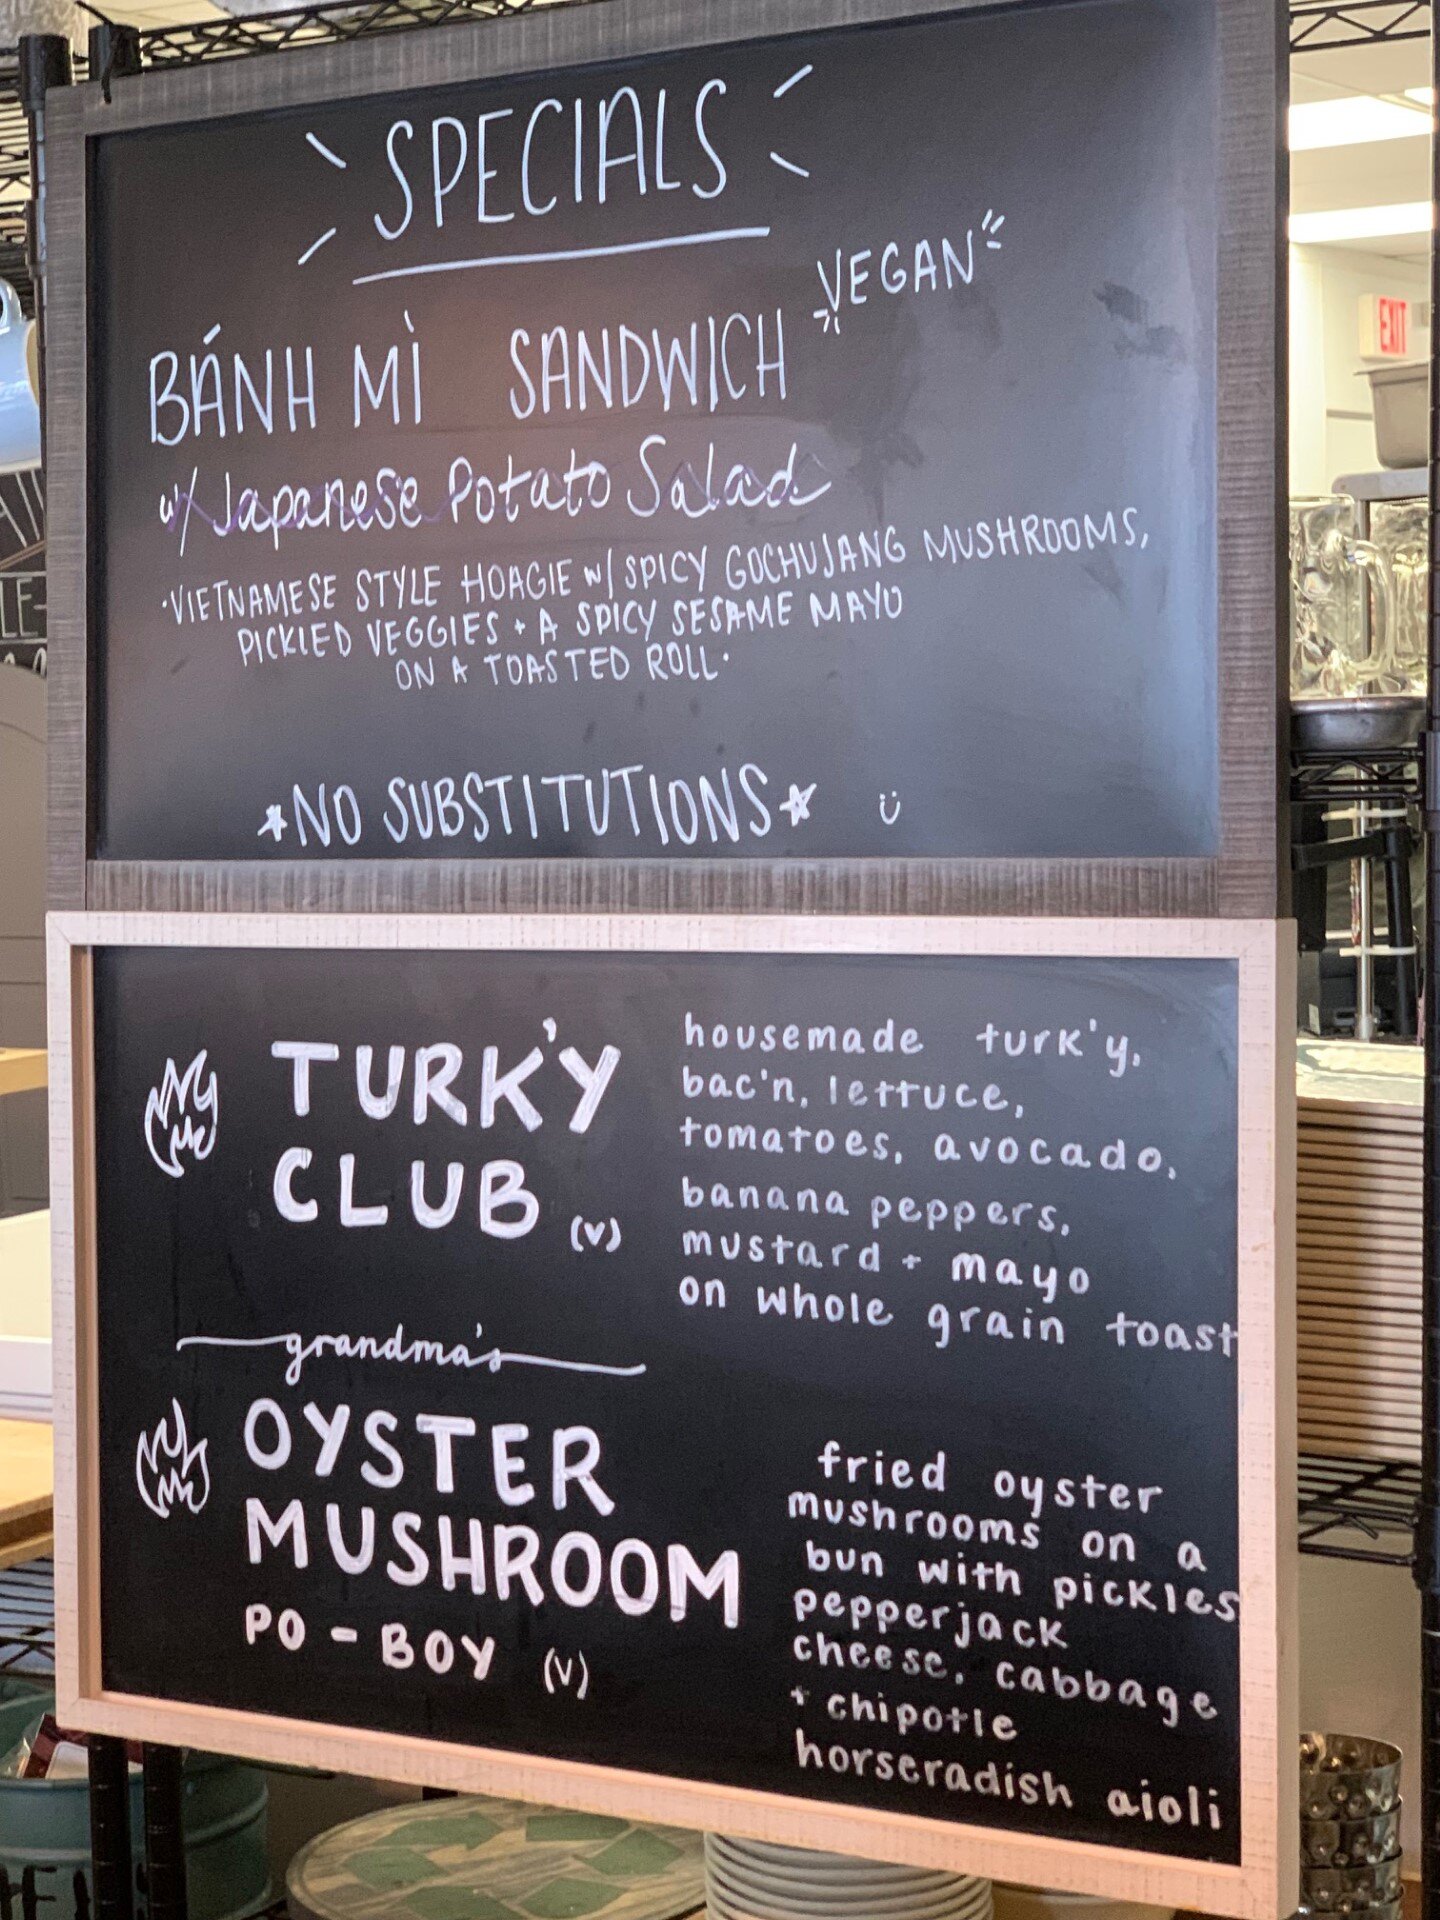 SPECIALS
VEGAN
BÁNH MÌ SANDWICH
w/ Japanese Potato Salad
·VIETNAMESE STYLE HOAGIE w/ SPICY GOCHUJANG MUSHROOMS,
PICKLED VEGGIES + A SPICY SESAME MAYO
ON A TOASTED ROLL·
*NO SUBSTITUTIONS*
EXIT
TURK'Y
CLUB (V)
housemade turk'y,
bac'n, lettuce,
tomatoes, avocado,
banana peppers,
mustard + mayo
on whole grain toast
grandma's
OYSTER
MUSHROOM
PO-BOY (V)
fried oyster
mushrooms on a
bun with pickles
pepperjack
cheese, cabbage
+ chipotle
horseradish aioli